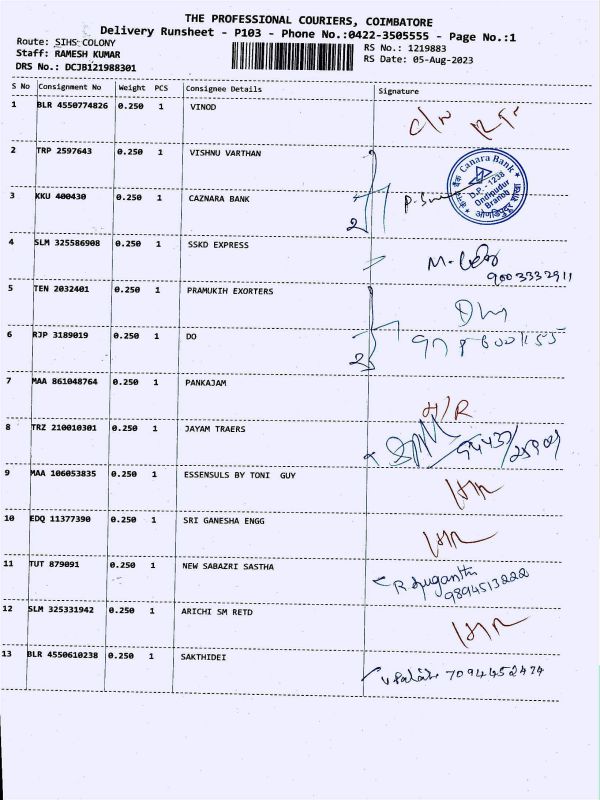 THE PROFESSIONAL COURIERS, COIMBATORE
Delivery Runsheet - P103 - Phone No.:0422-3505555 - Page No.:1
Route: SIHS COLONY
RS No.: 1219883
Staff: RAMESH KUMAR
RS Date: 05-Aug-2023
DRS No.: DCJB121988301
S No Consignment No Weight PCS Consignee Details Signature
1 BLR 4550774826 0.250 1 VINOD
2 TRP 2597643 0.250 1 VISHNU VARTHAN
Canara Bank
D.P.- 1238
Ondipudur
Branch
3 KKU 400430 0.250 1 CAZNARA BANK
2
4 SLM 325586908 0.250 1 SSKD EXPRESS
9003332911
5 TEN 2032401 0.250 1 PRAMUKIH EXORTERS
6 RJP 3189019 0.250 1 DO
2
7 MAA 861048764 0.250 1 PANKAJAM
8 TRZ 210010301 0.250 1 JAYAM TRAERS
9 MAA 106053835 0.250 1 ESSENSULS BY TONI GUY
10 EDQ 11377390 0.250 1 SRI GANESHA ENGG
11 TUT 879091 0.250 1 NEW SABAZRI SASTHA
9894513222
12 SLM 325331942 0.250 1 ARICHI SM RETD
13 BLR 4550610238 0.250 1 SAKTHIDEI
7094452474